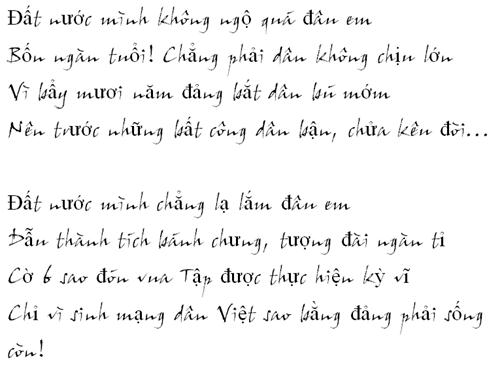 Đất nước mình không ngộ quá đâu em
Bốn ngàn tuổi! Chẳng phải dân không chịu lớn
Vì bẩy mươi năm đảng bắt dân bú mớm
Nên trước những bất công dân bận, chửa kêu đòi...
Đất nước mình chẳng lạ lắm đâu em
Dẫu thành tích bánh chưng, tượng đài ngàn tỉ
Cờ 6 sao đón vua Tập được thực hiện kỳ vĩ
Chỉ vì sinh mạng dân Việt sao bằng đảng phải sống
còn!